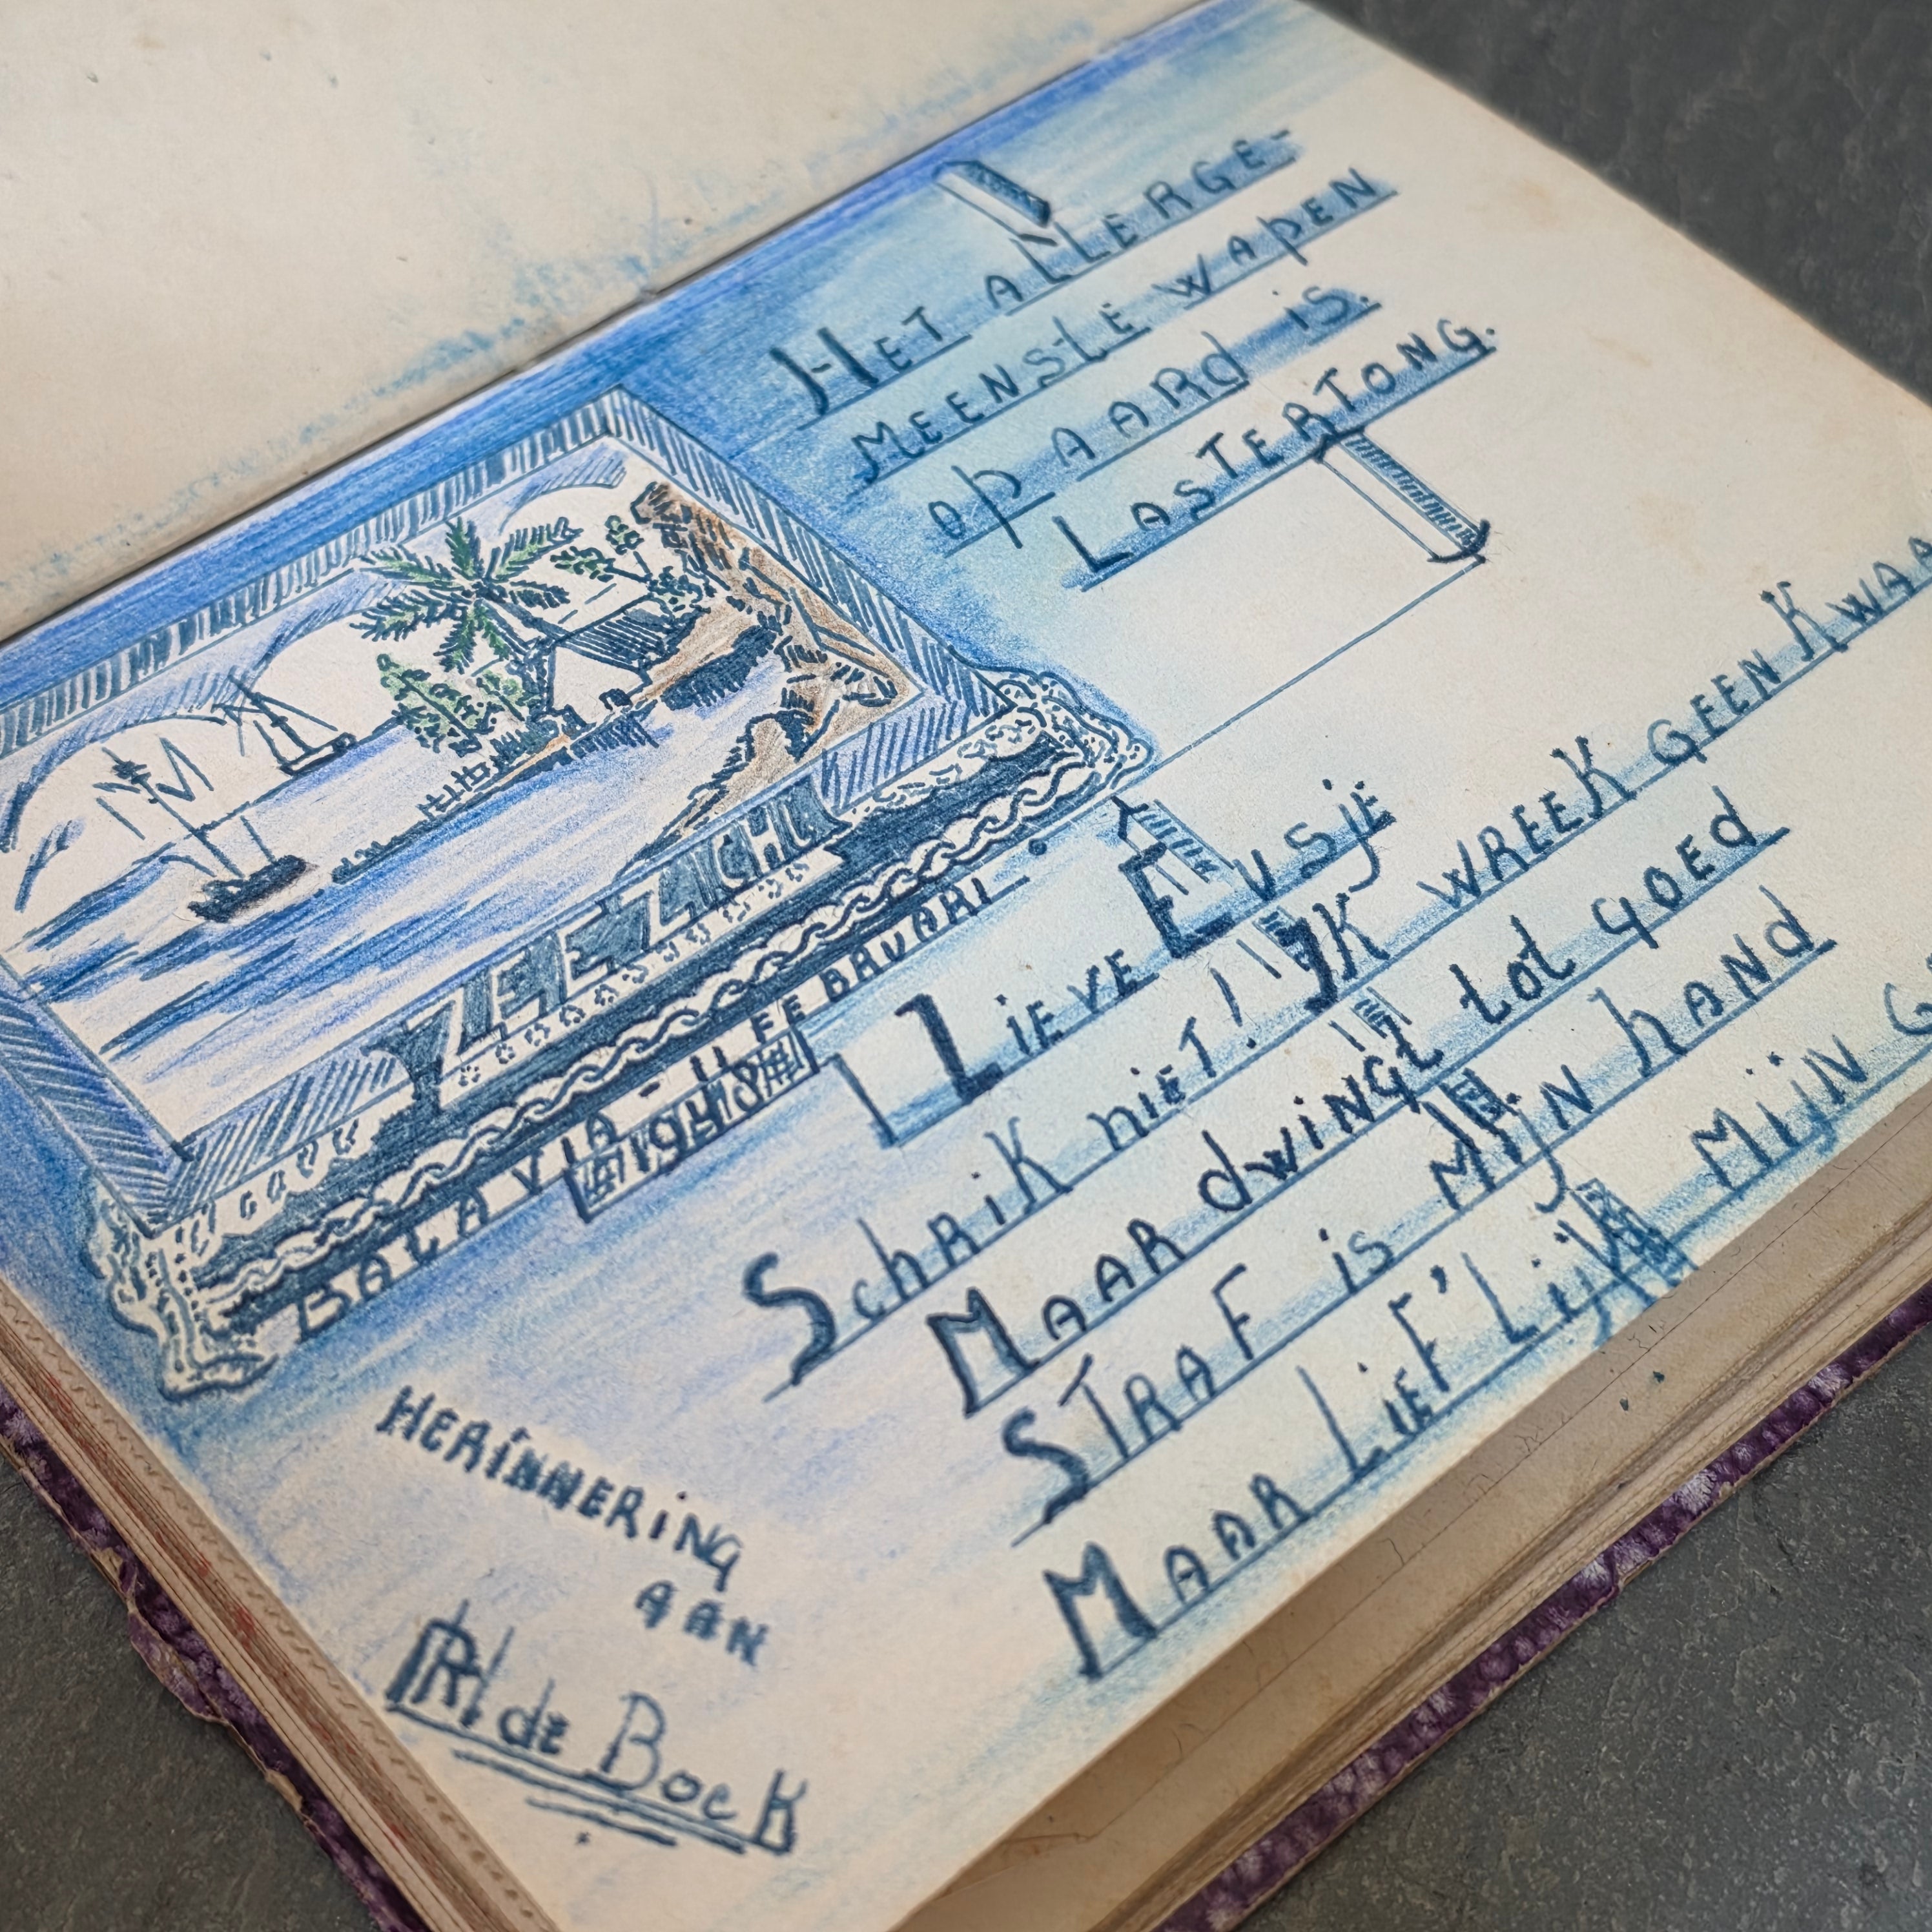 HET ALLERGE-
MEENSTE WAPEN
OP AARD IS.
LASTERTONG.
ZEEZICHT
BATAVIA - 11 FEBRUARI -
1948
LIEVE EUSJE
SCHRIK NIET! IK WREEK GEEN KWAA
MAAR DWINGT TOT GOED
STRAF IS MIJN HAND
MAAR LIEF'LIJK MIJN
HERINNERING
AAN
de BOCK